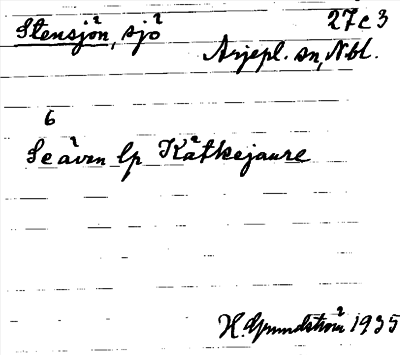 Stensjön, sjö 27c3
Arjepl. sn, Nbt.
6
Se även lp Kåtkejaure
H. Grundström 1935